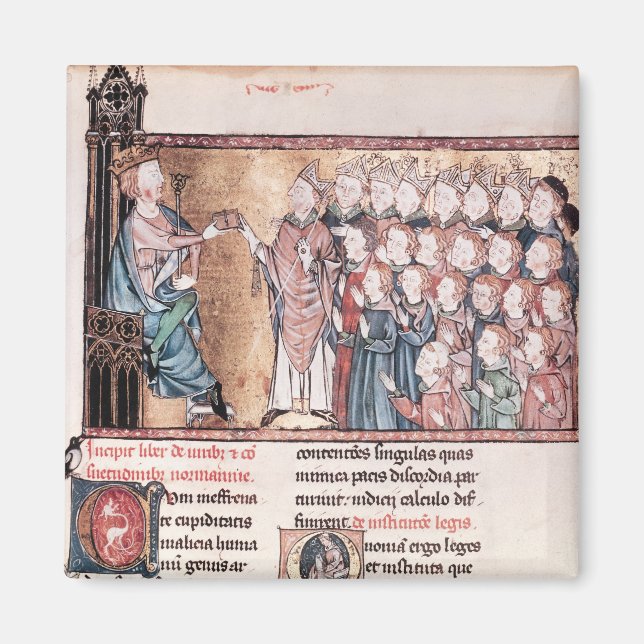 Incipit liber de iuribz & cō
suetudinibz normannie.
Cum ineffrena
te cupiditatis
malicia huma
nū genus ar
contentōes singulas quas
inimica pacis discordia par
turiunt: iudicii calculo dif
finirent. de institucōe legis.
Quoniā ergo leges
et instituta que